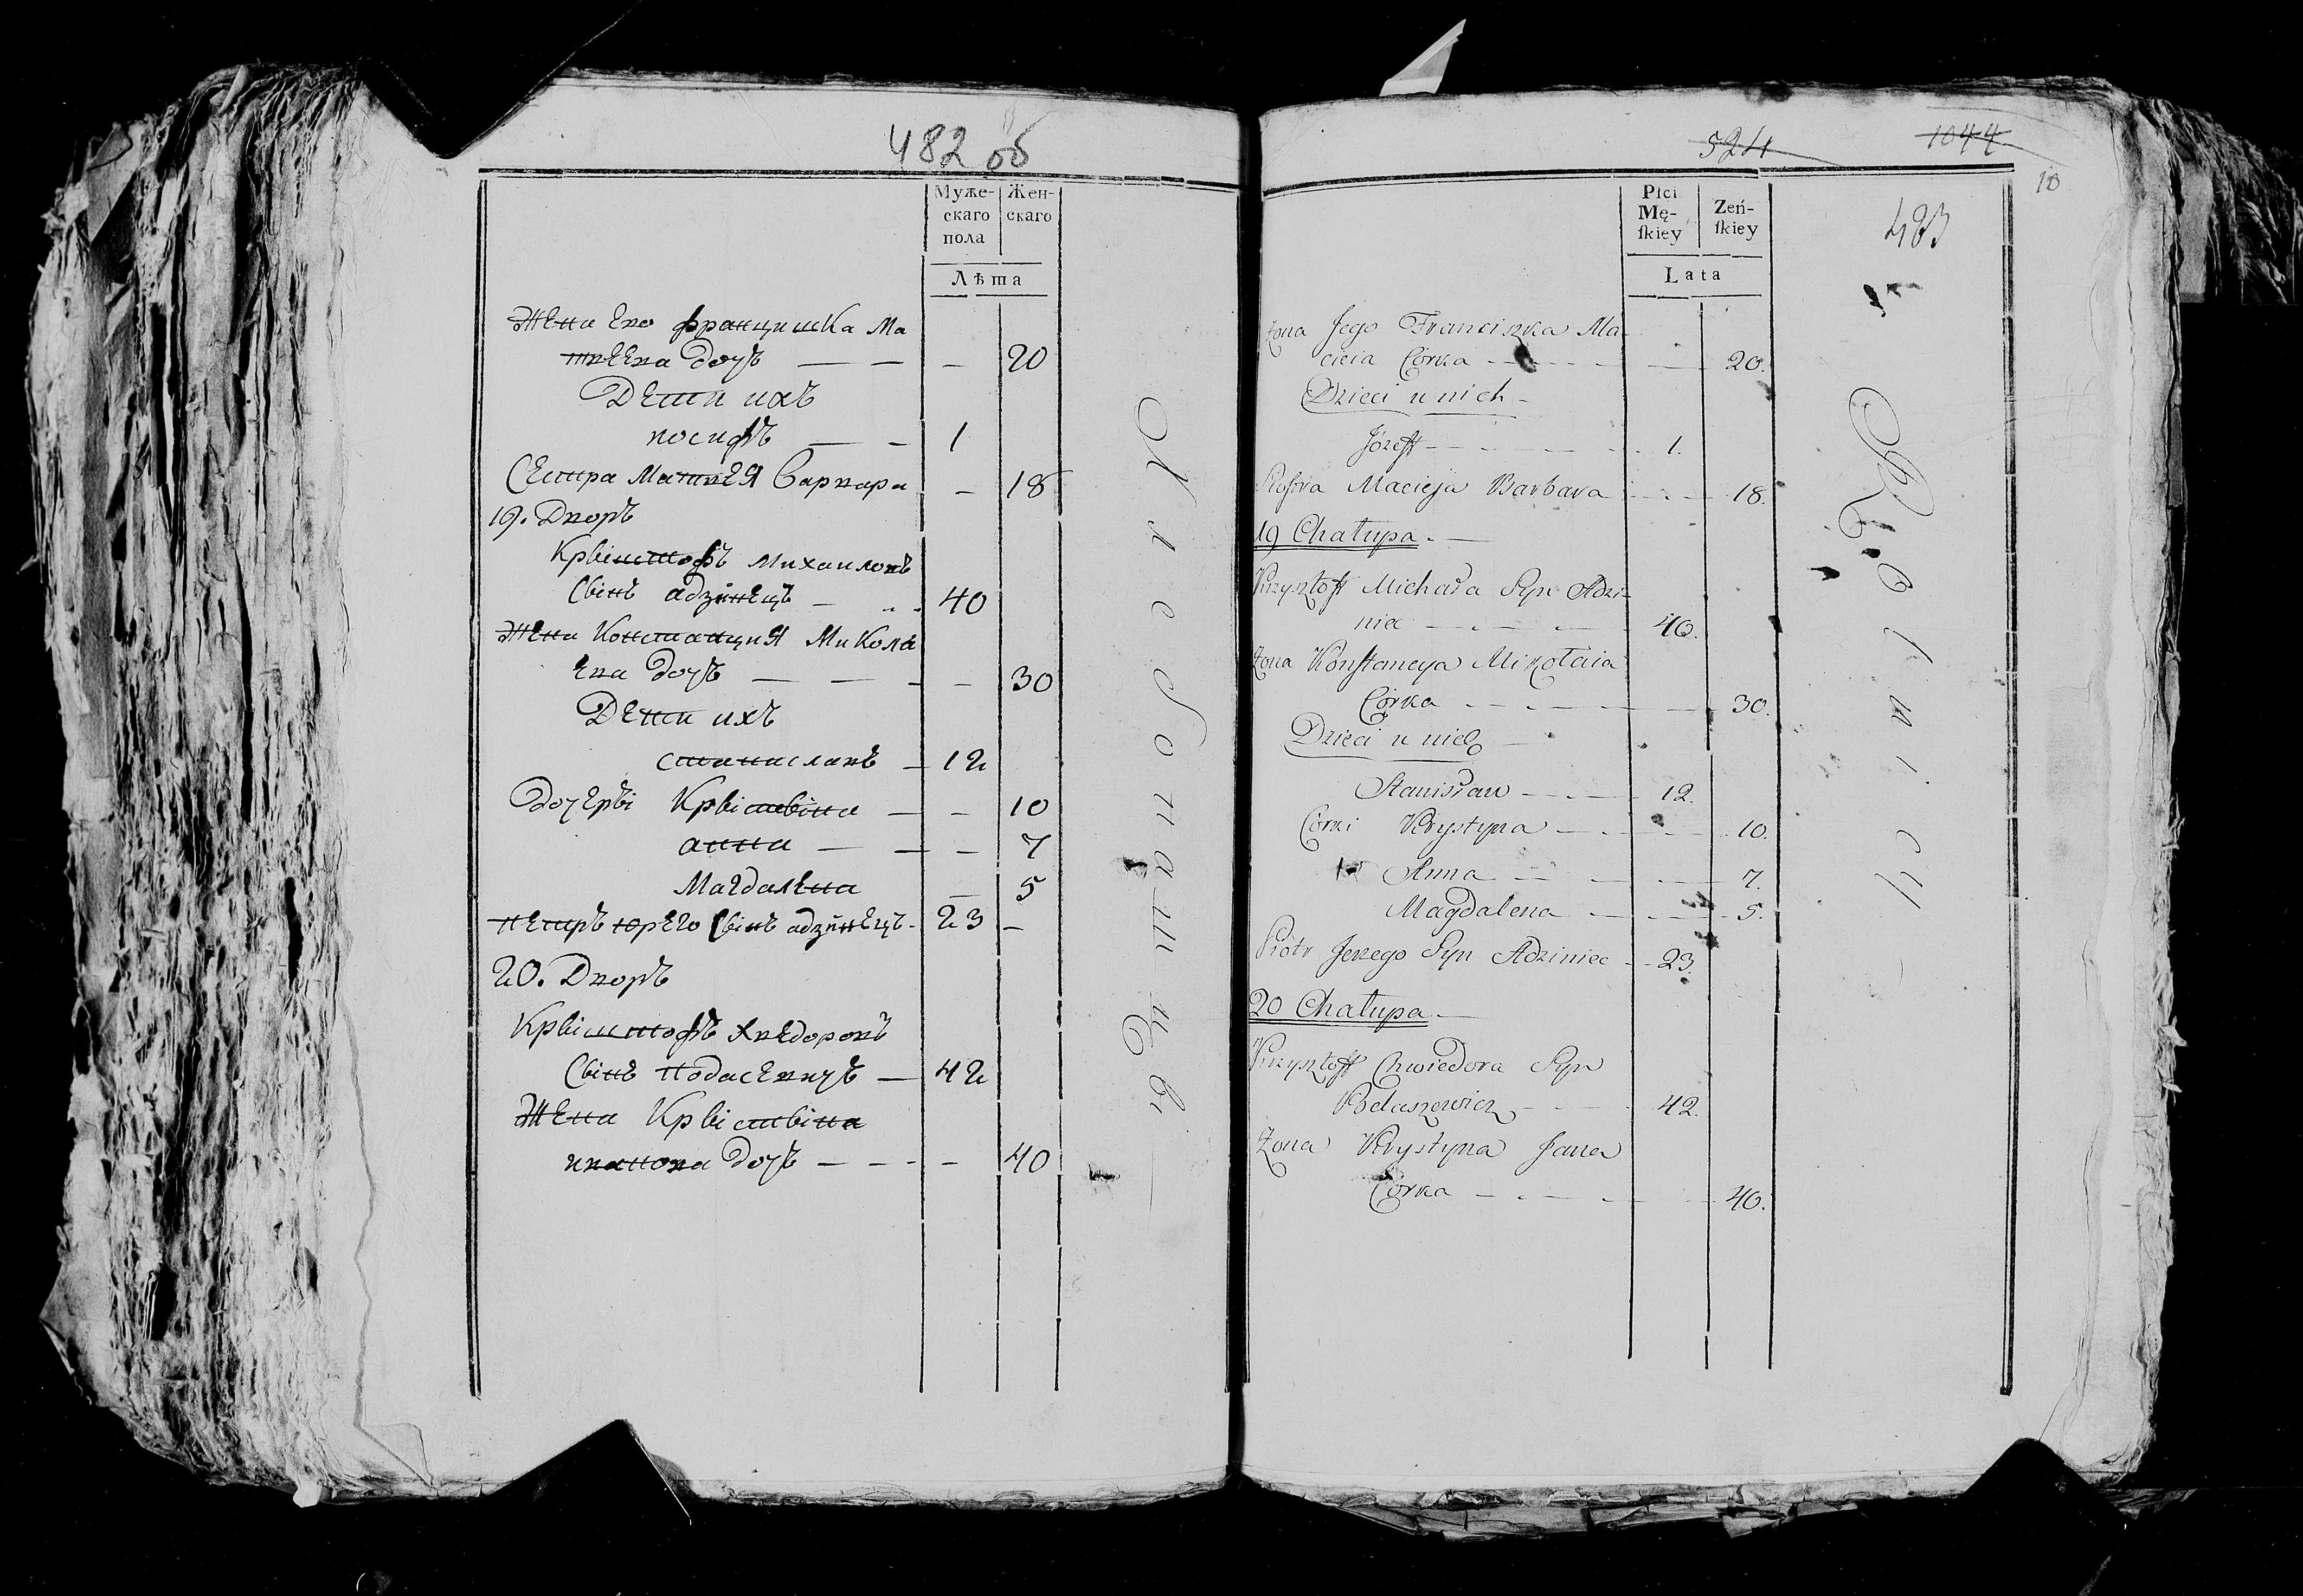 482 об
Муже-
скаго
пола
Жен-
скаго
Лѣта
Жена Его францишка Ма
твеева дочь — — — 20
Дети ихъ
иосифъ — — 1
Сестра Матвея варвара — 18
19. Дворъ
Крыштофъ Михаиловъ
Сынъ адзинецъ — 40
Жена Констанция Микола
ева дочь — — — — 30
Дети ихъ
станиславъ — 12
дочеры Крыстына — — 10
анна — — — 7
Магдалена — 5
петръ юрего Сынъ адзинецъ - 23 —
20. Дворъ
Крыштофъ Хведоровъ
Сынъ подасевичъ — 42
Жена Крыстына
иванова дочь — — - — 40
524
1044
10
483
Płci
Mę-
ſkiey
Zeń-
ſkiey
Lata
Zona Jego Franciszka Ma-
cieia Córka — 20.
Dzieci u nich —
Józeff — 1.
Siostra Macieja Barbara — 18.
19 Chałupa. —
Krzysztoff Michała Syn Adzi-
niec — 40.
Zona Konstancya Mikołaia
Córka — 30.
Dzieci u nich —
Stanisław — 12.
Corki Krystyna — 10.
Anna — 7.
Magdalena — 5.
Piotr Jerzego Syn Adziniec - 23.
20 Chałupa —
Krzysztoff Chwiedora Syn
Podaszewicz — 42.
Zona Krystyna Jana
Córka — 40.